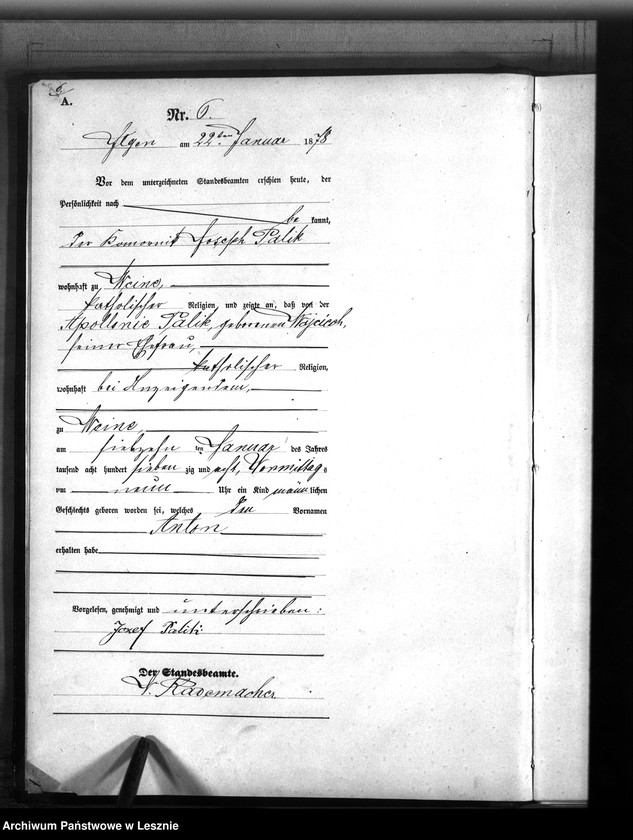 A.
Nr. 6.
Ilgen am 22ten Januar 1878
Vor dem unterzeichneten Standesbeamten erschien heute, der
Persönlichkeit nach
be kannt,
der Komornik Joseph Palik
wohnhaft zu Weine,
katholischer Religion, und zeigte an, daß von der
Apollonie Palik, geborenen Wojcicch,
seiner Ehefrau,
katholischer Religion,
wohnhaft bei Anzeigendem,
zu Weine,
am siebzehn ten Januar des Jahres
tausend acht hundert sieben zig und acht, Vormittag s
um neun Uhr ein Kind männ lichen
Geschlechts geboren worden sei, welches den Vornamen
Anton
erhalten habe
Vorgelesen, genehmigt und unterschrieben:
Jozef Paliki
Der Standesbeamte.
Rademacher
Archiwum Państwowe w Lesznie